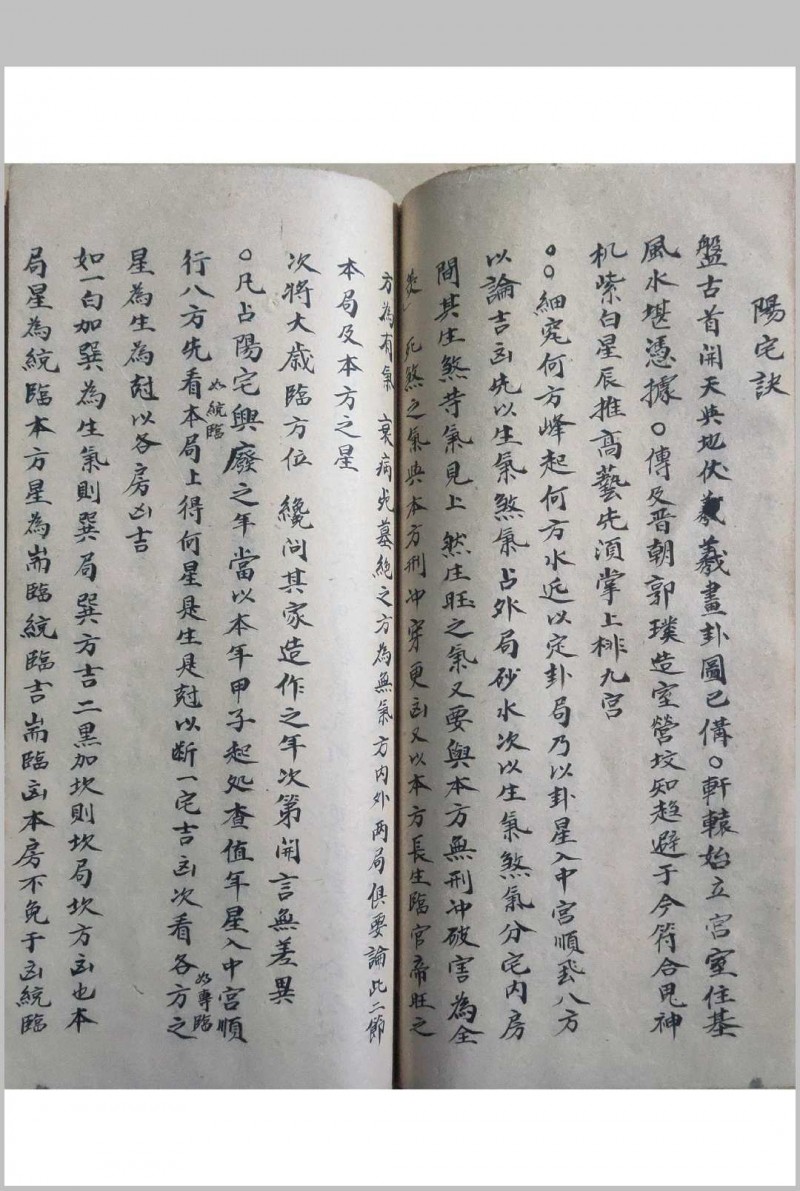 陽宅訣
盤古首開天與地伏羲羲畫卦圖已俻○軒轅始立宫室住基
風水堪憑據○傳及晋朝郭璞造室營坟知趋避于今符合鬼神
机紫白星辰推高藝先湏掌上排九宫
○○細究何方峰起何方水近以定卦局乃以卦星入中宫順飛八方
以論吉凶先以生氣煞氣占外局砂水次以生氣煞氣分宅内房
間其生煞等氣見上 然庄旺之氣又要與本方無刑冲破害為全
死煞之氣與本方刑冲穿更凶又以本方長生臨官帝旺之
方為有氣 衰病死墓絶之方為無氣方内外两局俱要論此二節
本局及本方之星
次將大歳臨方位 纔问其家造作之年次第開言無差異
○凡占陽宅興廢之年當以本年甲子起処查值年星入中宫順
行八方先看本局上得何星是生是尅以断一宅吉凶次看各方之
如統臨
如專臨
星為生為尅以各房凶吉
如一白加巽為生氣則巽局巽方吉二黒加坎則坎局坎方凶也本
局星為統臨本方星為耑臨統臨吉耑臨凶本房不免于凶統臨